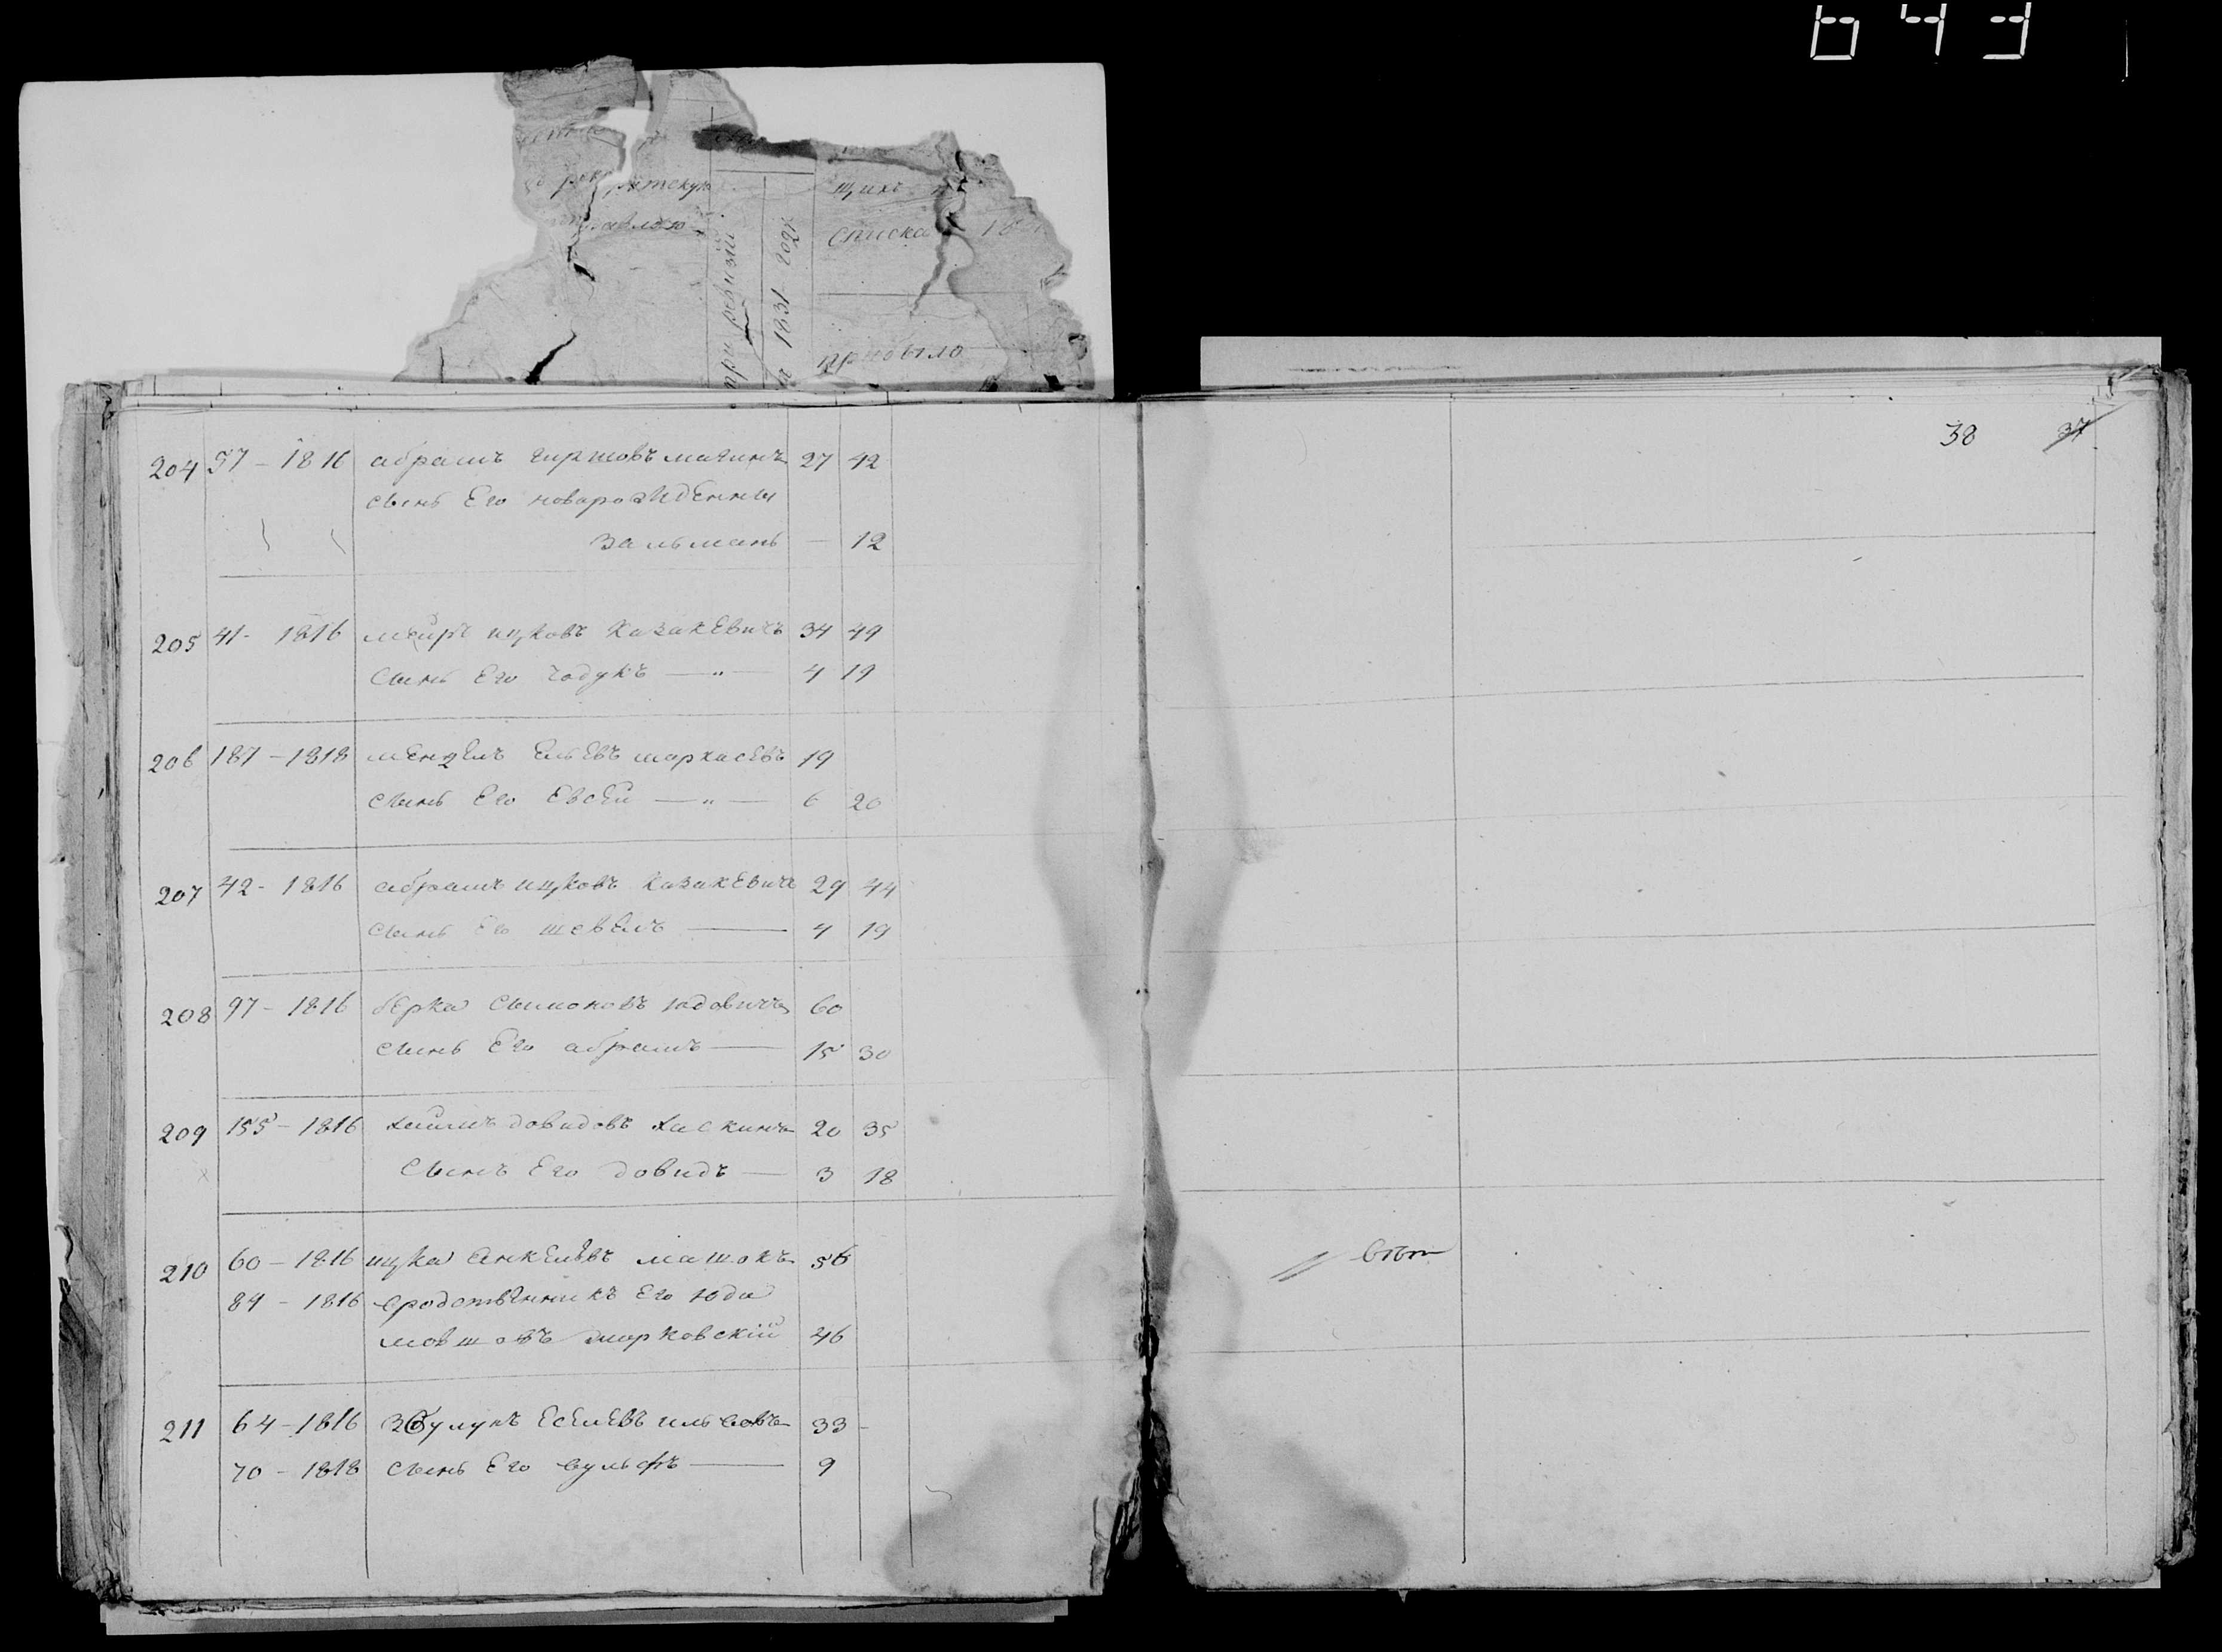 643
рекрутскую
при ревизіи
1831 году
щихъ
списка 18
прибыло
38 37
204 57 - 1816 абрамъ гиршовъ магинъ 27 42
сынъ Его новарожденны
Зальманъ — 12
205 41 - 1816 мейръ ицковъ казакевичъ 34 49
сынъ Его —„— 4 19
206 187 - 1818 мендель Ельевъ 19
сынъ Его Евсей —„— 6 20
207 42 - 1816 абрамъ ицковъ казакевичъ 29 44
сынъ Его шевелъ — 4 19
208 97 - 1816 берка сымоновъ юдовичъ 60
сынъ Его абрамъ — 15 30
209 155 - 1816 хаимъ довидовъ хаскинъ 20 35
Сынъ Его довидъ — 3 18
210 60 - 1816 ицка Янкелевъ машокъ 56
84 - 1816 сродственникъ Его юда
мовшовъ марковскій 46
211 64 - 1816 Збулунъ Еселевъ 33 -
70 - 1818 сынъ Его вульфъ — 9